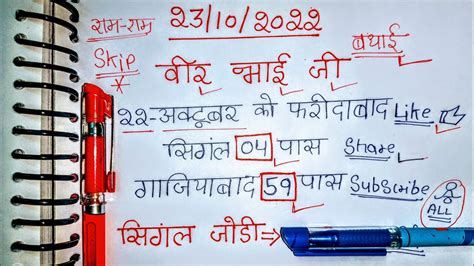 राम-राम 23/10/2022 बधाई
Skip वीर भाई जी
22-अक्टूबर को फरीदाबाद Like
सिगंल 04 पास Share
गाजियाबाद 59 पास Subscribe
ALL
सिगंल जोडी⇒